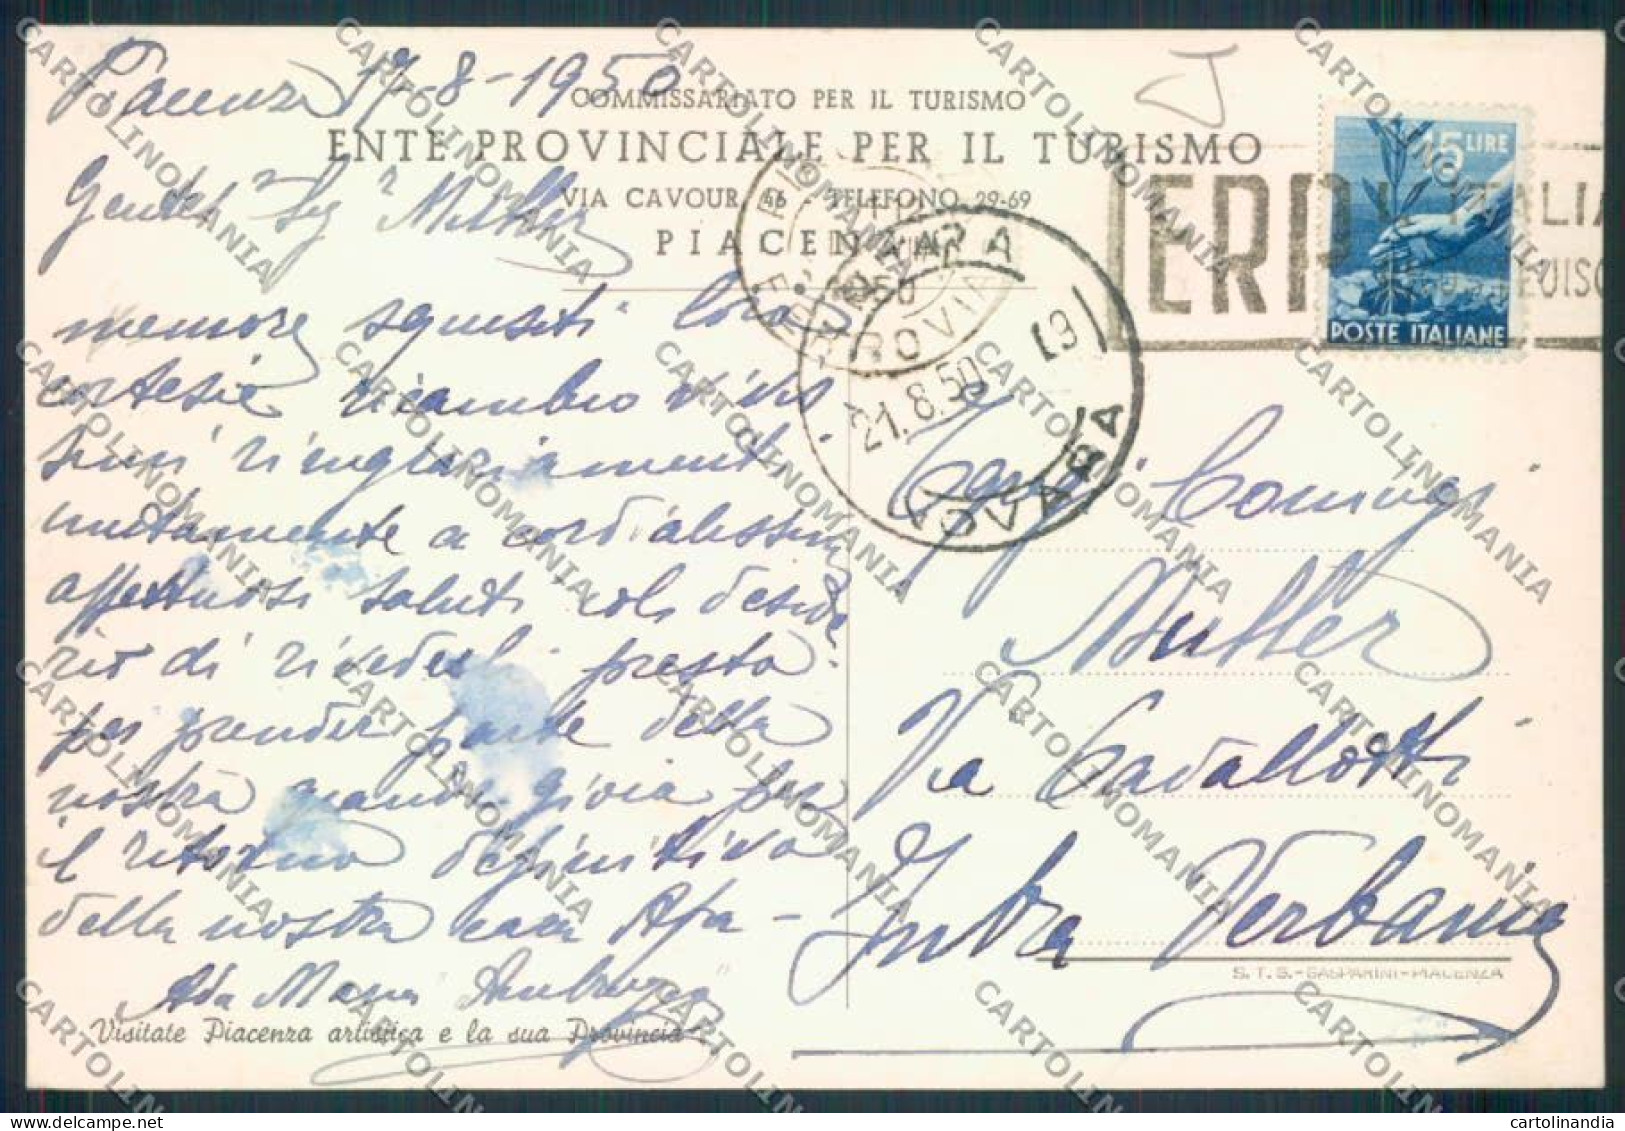 Piacenza 17-8-1950
COMMISSARIATO PER IL TURISMO
ENTE PROVINCIALE PER IL TURISMO
VIA CAVOUR, 46 - TELEFONO 29-69
PIACENZA
15 LIRE
POSTE ITALIANE
ERP
L'ITALIA
21.8.50 19
NOVARA
Muller
memore squisiti loro
cortesie ricambio vivis
simi ringraziamenti
unitamente a cordialissimi
affettuosi saluti col deside
rio di rivederli presto
per prender parte della
nostra grande gioia per
il ritorno definitivo
della nostra cara Afra -
Ada Maria
Visitate Piacenza artistica e la sua Provincia
Coniugi
Muller
Via Cavallotti
Intra Verbania
S.T.G.-GASPARINI-PIACENZA
CARTOLINOMANIA
cartolinandia